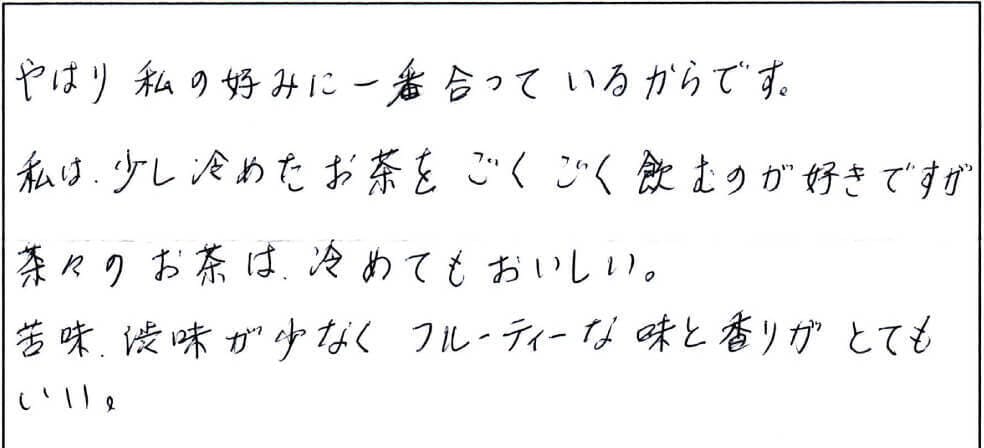 やはり私の好みに一番合っているからです。
私は、少し冷めたお茶をごくごく飲むのが好きですが
茶々のお茶は、冷めてもおいしい。
苦味、渋味が少なくフルーティーな味と香りがとても
いい。